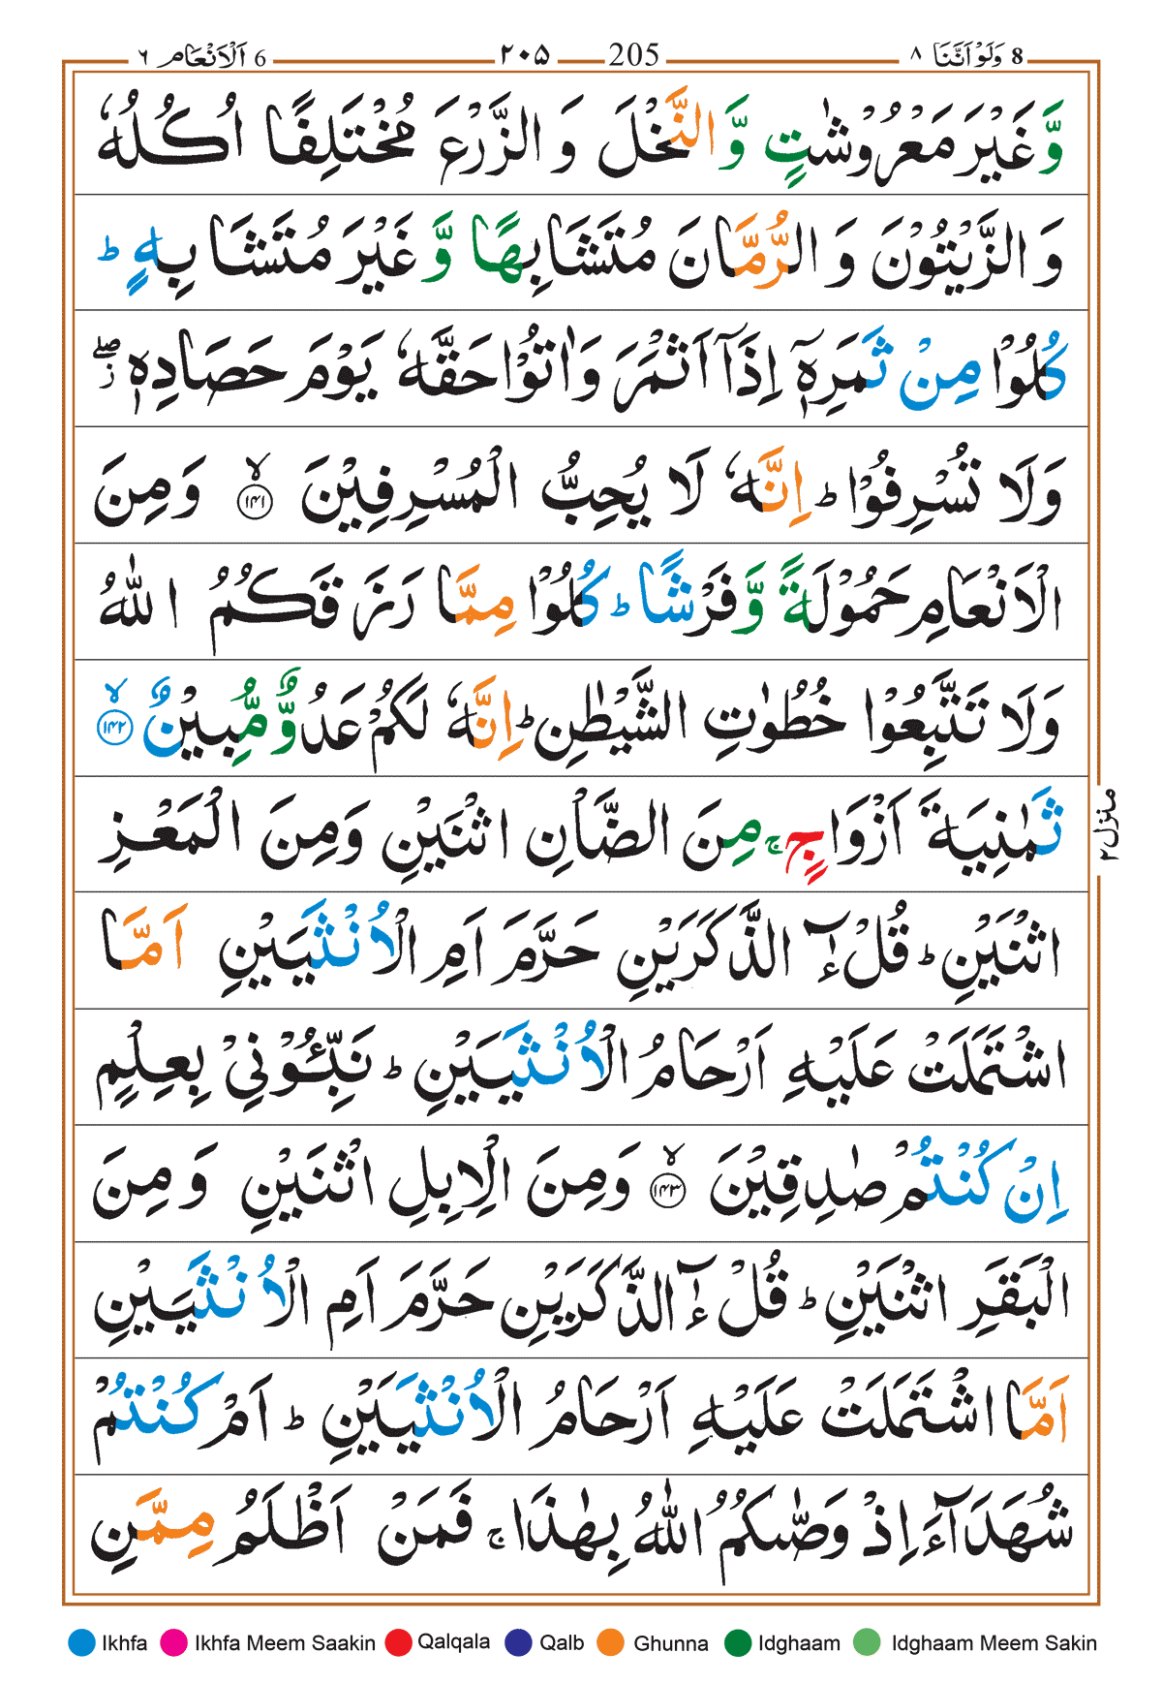 8 وَلَوْ اَنَّنَا ٨ 205 ٢٠٥ 6 اَلْاَنْعَام ٦
وَّغَيْرَ مَعْرُوْشٰتٍ وَّالنَّخْلَ وَ الزَّرْعَ مُخْتَلِفًا اُكُلُهٗ
وَ الزَّيْتُوْنَ وَ الرُّمَّانَ مُتَشَابِهًا وَّ غَيْرَ مُتَشَابِهٍ ؕ
كُلُوْا مِنْ ثَمَرِهٖۤ اِذَاۤ اَثْمَرَ وَاٰتُوْا حَقَّهٗ يَوْمَ حَصَادِهٖ ۖز
وَلَا تُسْرِفُوْا ؕ اِنَّهٗ لَا يُحِبُّ الْمُسْرِفِيْنَ ۙ‏﴿۱۴۱﴾ وَمِنَ
الْاَنْعَامِ حَمُوْلَةً وَّفَرْشًا ؕ كُلُوْا مِمَّا رَزَقَكُمُ اللّٰهُ
وَلَا تَتَّبِعُوْا خُطُوٰتِ الشَّيْطٰنِ ؕ اِنَّهٗ لَكُمْ عَدُوٌّ مُّبِيْنٌ ۙ‏﴿۱۴۲﴾
ثَمٰنِيَةَ اَزْوَاجٍ ۚ مِنَ الضَّاْنِ اثْنَيْنِ وَمِنَ الْمَعْزِ
منزل ٢
اثْنَيْنِ ؕ قُلْ ءٰٓ الذَّكَرَيْنِ حَرَّمَ اَمِ الْاُنْثَيَيْنِ اَمَّا
اشْتَمَلَتْ عَلَيْهِ اَرْحَامُ الْاُنْثَيَيْنِ ؕ نَبِّـُٔوْنِيْ بِعِلْمٍ
اِنْ كُنْتُمْ صٰدِقِيْنَ ۙ‏﴿۱۴۳﴾ وَمِنَ الْاِبِلِ اثْنَيْنِ وَمِنَ
الْبَقَرِ اثْنَيْنِ ؕ قُلْ ءٰٓ الذَّكَرَيْنِ حَرَّمَ اَمِ الْاُنْثَيَيْنِ
اَمَّا اشْتَمَلَتْ عَلَيْهِ اَرْحَامُ الْاُنْثَيَيْنِ ؕ اَمْ كُنْتُمْ
شُهَدَآءَ اِذْ وَصّٰىكُمُ اللّٰهُ بِهٰذَا ۚ فَمَنْ اَظْلَمُ مِمَّنِ
Ikhfa Ikhfa Meem Saakin Qalqala Qalb Ghunna Idghaam Idghaam Meem Sakin